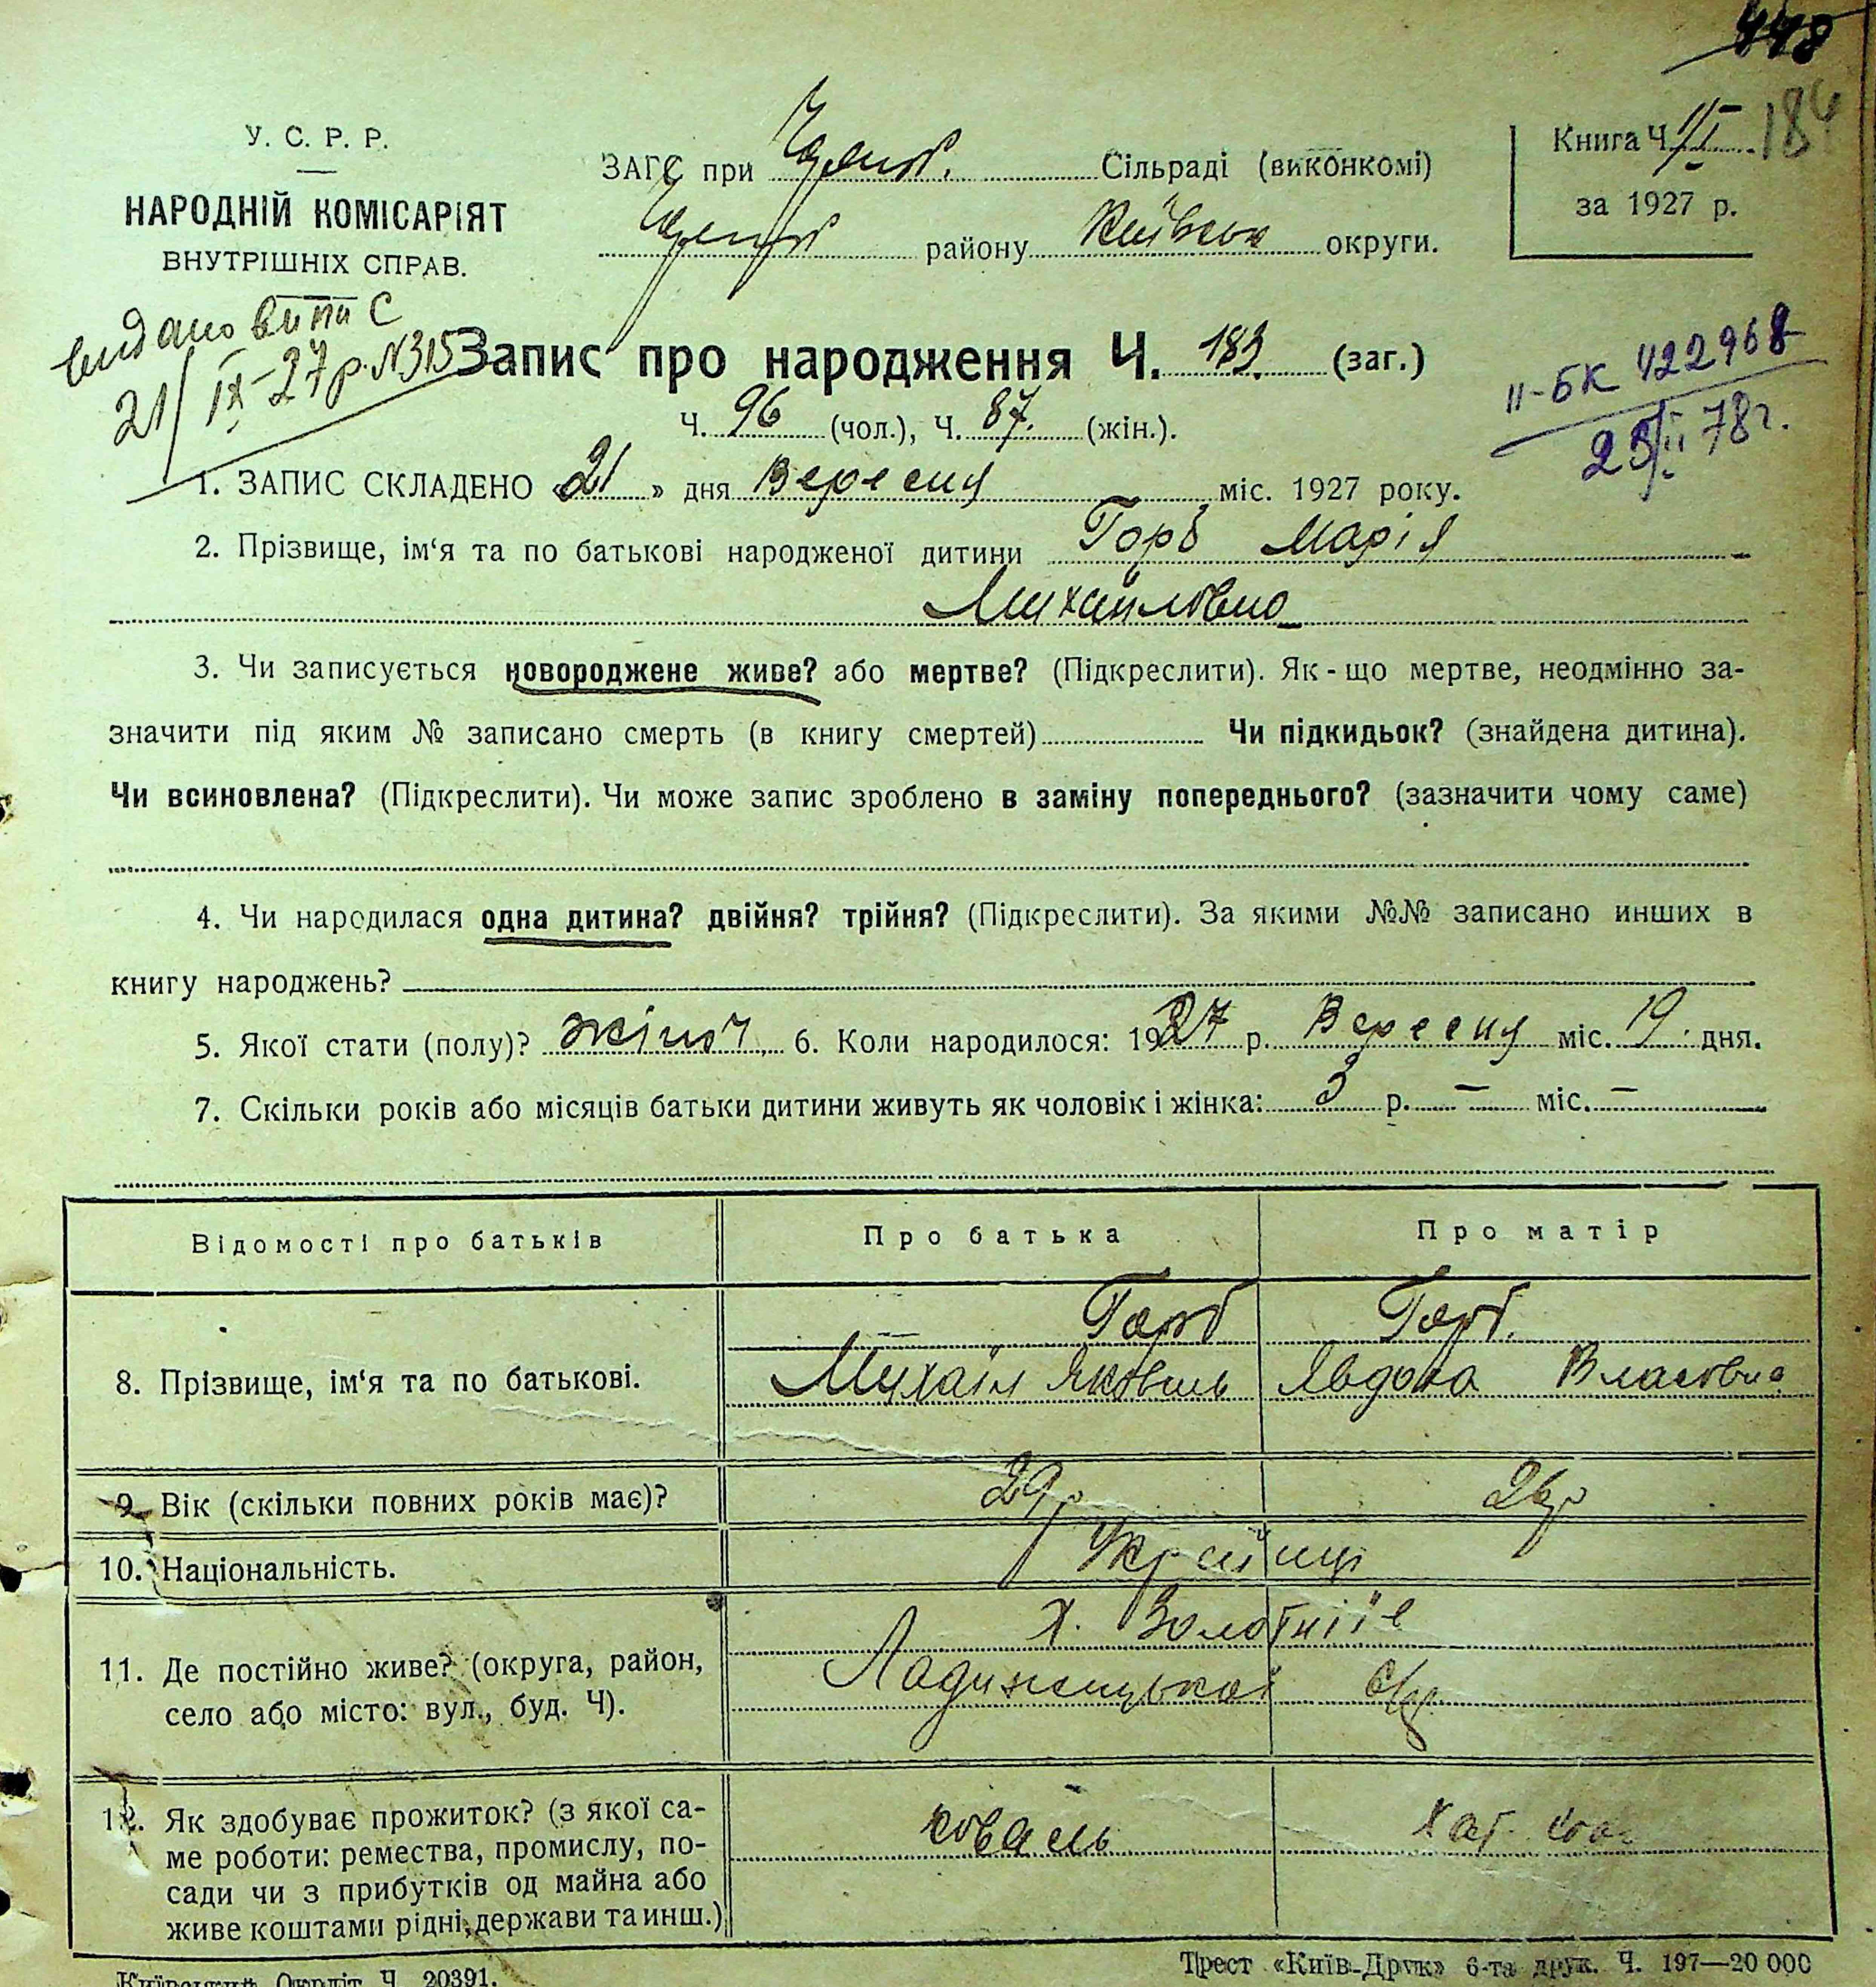 448
У. С. Р. Р.
НАРОДНІЙ КОМІСАРІЯТ
ВНУТРІШНІХ СПРАВ.
ЗАГС при Сільраді (виконкомі)
району Київськ округи.
Книга Ч. 1/I 184
за 1927 р.
видано випис
21/IX-27 р. N315
Запис про народження Ч. 183. (заг.)
Ч. 96 (чол.), Ч. 87. (жін.).
II-БК 422968
23/II 78г.
1. ЗАПИС СКЛАДЕНО «21» дня Вересня міс. 1927 року.
2. Прізвище, ім‘я та по батькові народженої дитини Горб Марія
Михайловна
3. Чи записується новороджене живе? або мертве? (Підкреслити). Як-що мертве, неодмінно за-
значити під яким № записано смерть (в книгу смертей) Чи підкидьок? (знайдена дитина).
Чи всиновлена? (Підкреслити). Чи може запис зроблено в заміну попереднього? (зазначити чому саме)
4. Чи народилася одна дитина? двійня? трійня? (Підкреслити). За якими №№ записано инших в
книгу народжень?
5. Якої стати (полу)? жіноч. 6. Коли народилося: 1927 р. Вересня міс. 19 дня.
7. Скільки років або місяців батьки дитини живуть як чоловік і жінка: 3 р. — міс. —
Відомості про батьків Про батька Про матір
Горб Горб.
8. Прізвище, ім‘я та по батькові. Михаіл Яковшь Явдоха Власовна
9. Вік (скільки повних років має)? 29 р 26 р
10. Національність. Українці
х. Золотніїв
11. Де постійно живе? (округа, район,
село або місто: вул., буд. Ч).
Ладижицької с/р
12. Як здобуває прожиток? (з якої са-
ме роботи: ремества, промислу, по-
сади чи з прибутків од майна або
живе коштами рідні, держави та инш.)
коваль хат.
Київський Окрліт Ч. 20391.
Трест «Київ-Друк» 6-та друк. Ч. 197—20 000